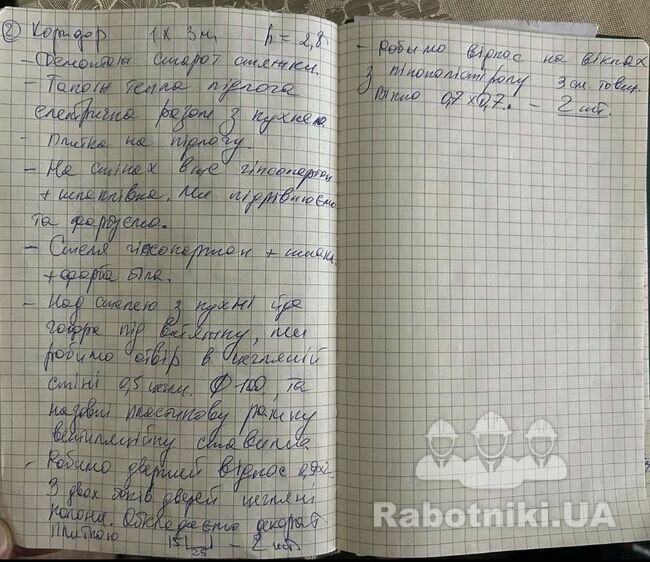 ② Коридор 1 х 3 м. h = 2,8
- Демонтаж старої стяжки.
- Тепла підлога
електрична разом з кухнею
- Плитка на підлогу.
- На стінах вже гіпсокартон
+ шпаклівка. Ми підрівнюємо
та фарбуємо.
- Стеля гіпсокартон + шпакл.
+ фарба біла.
- Над стелею з кухні йде
гофра під витяжку, ми
робимо отвір в цегляній
стіні 0,5 цегли. Ф 100, та
назовні пластикову рамку
вентиляційну ставимо
- Робимо дверний відкос
З двох боків дверей цегляні
колони. Обкладаємо декорат.
плиткою 15 25 - 2 шт
- Робимо відкос на вікнах
з пінополістиролу 3 см. товщ.
Вікно 0,7 х 0,7. - 2 шт.
Rabotniki.UA